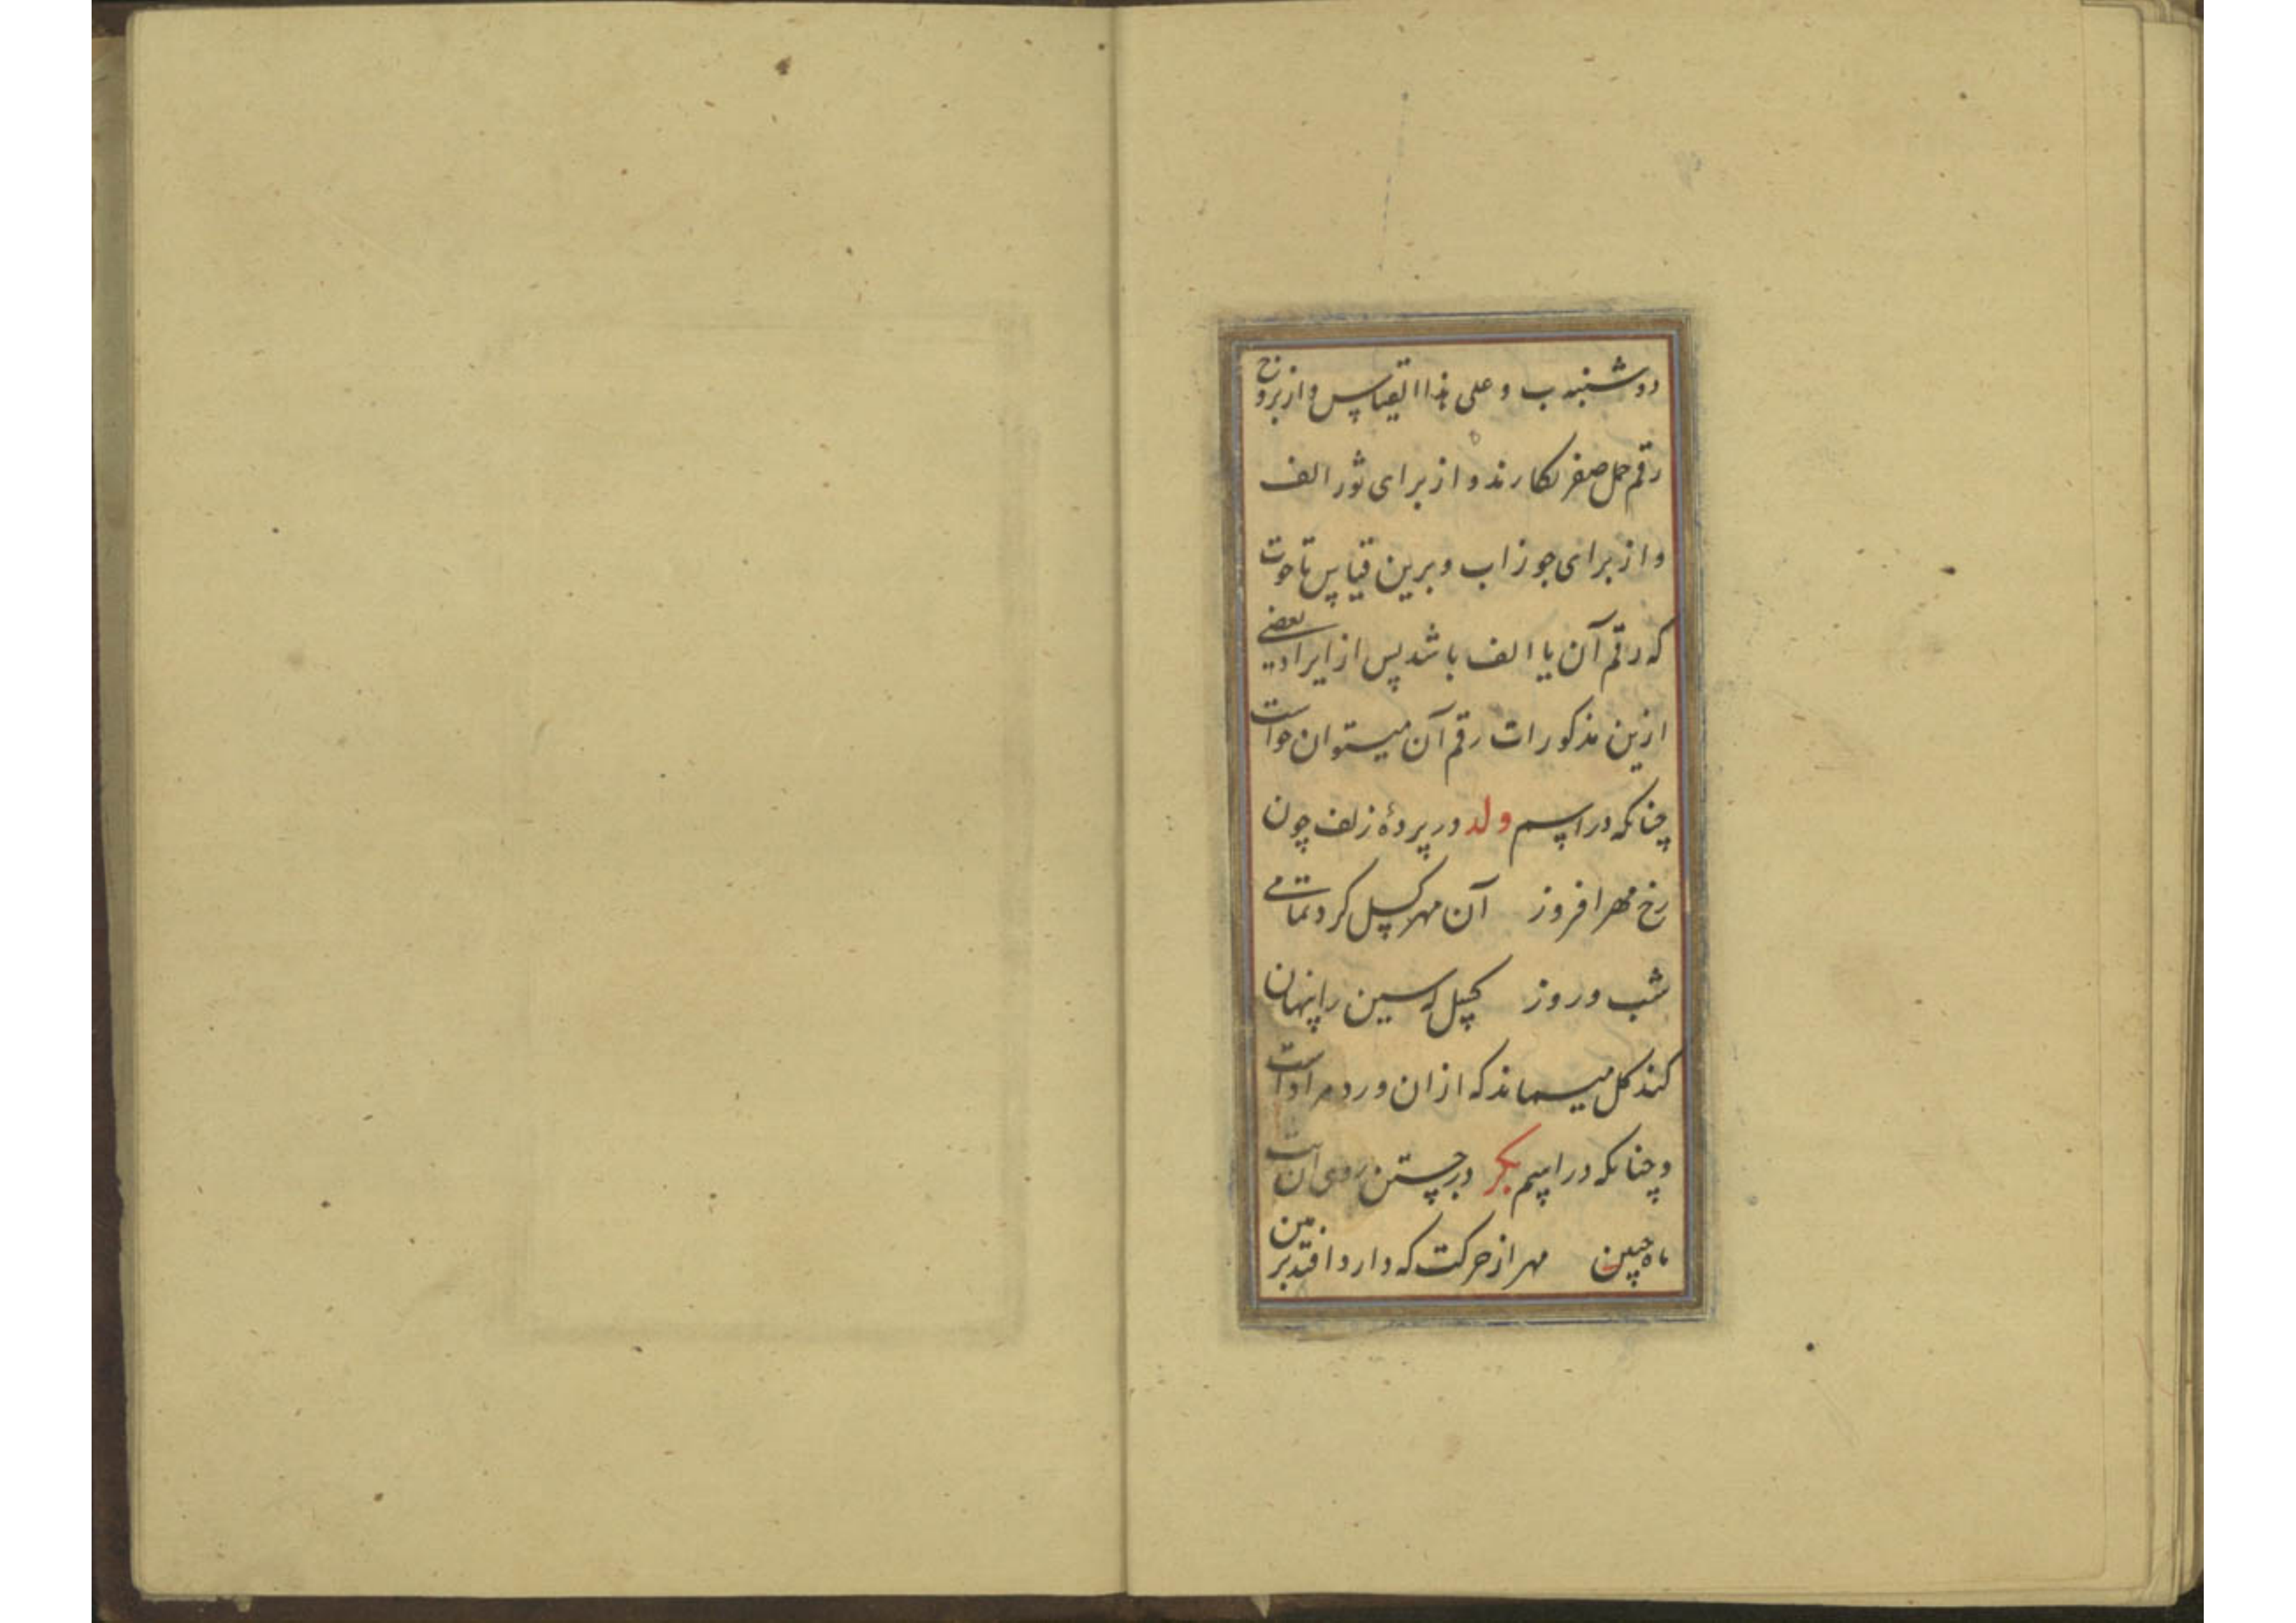 دوشنبه ب و علی هذا القیاس و از بروج
رقم حمل صفر نگارند و از برای ثور الف
و از برای جوزا ب و برین قیاس تا حوت
که رقم آن یا الف باشد پس از ایراد بعضی
ازین مذکورات رقم آن میتوان خواست
چنانکه در اسم ولد در پردهٔ زلف چون
رخ مهر افروز آن مهر کسل کرد تمامی
شب و روز کچل که سین را پنهان
کند کل میماند که از ان ورد مراد است
و چنانکه در اسم بکر در جستن روی آن بت
ماه جبین مهر از حرکت که دارد افتد بر زمین